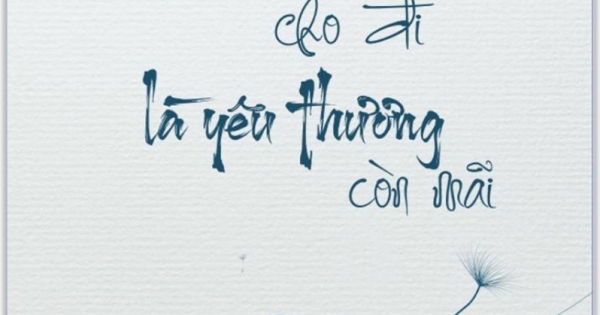 cho đi
là yêu thương
còn mãi